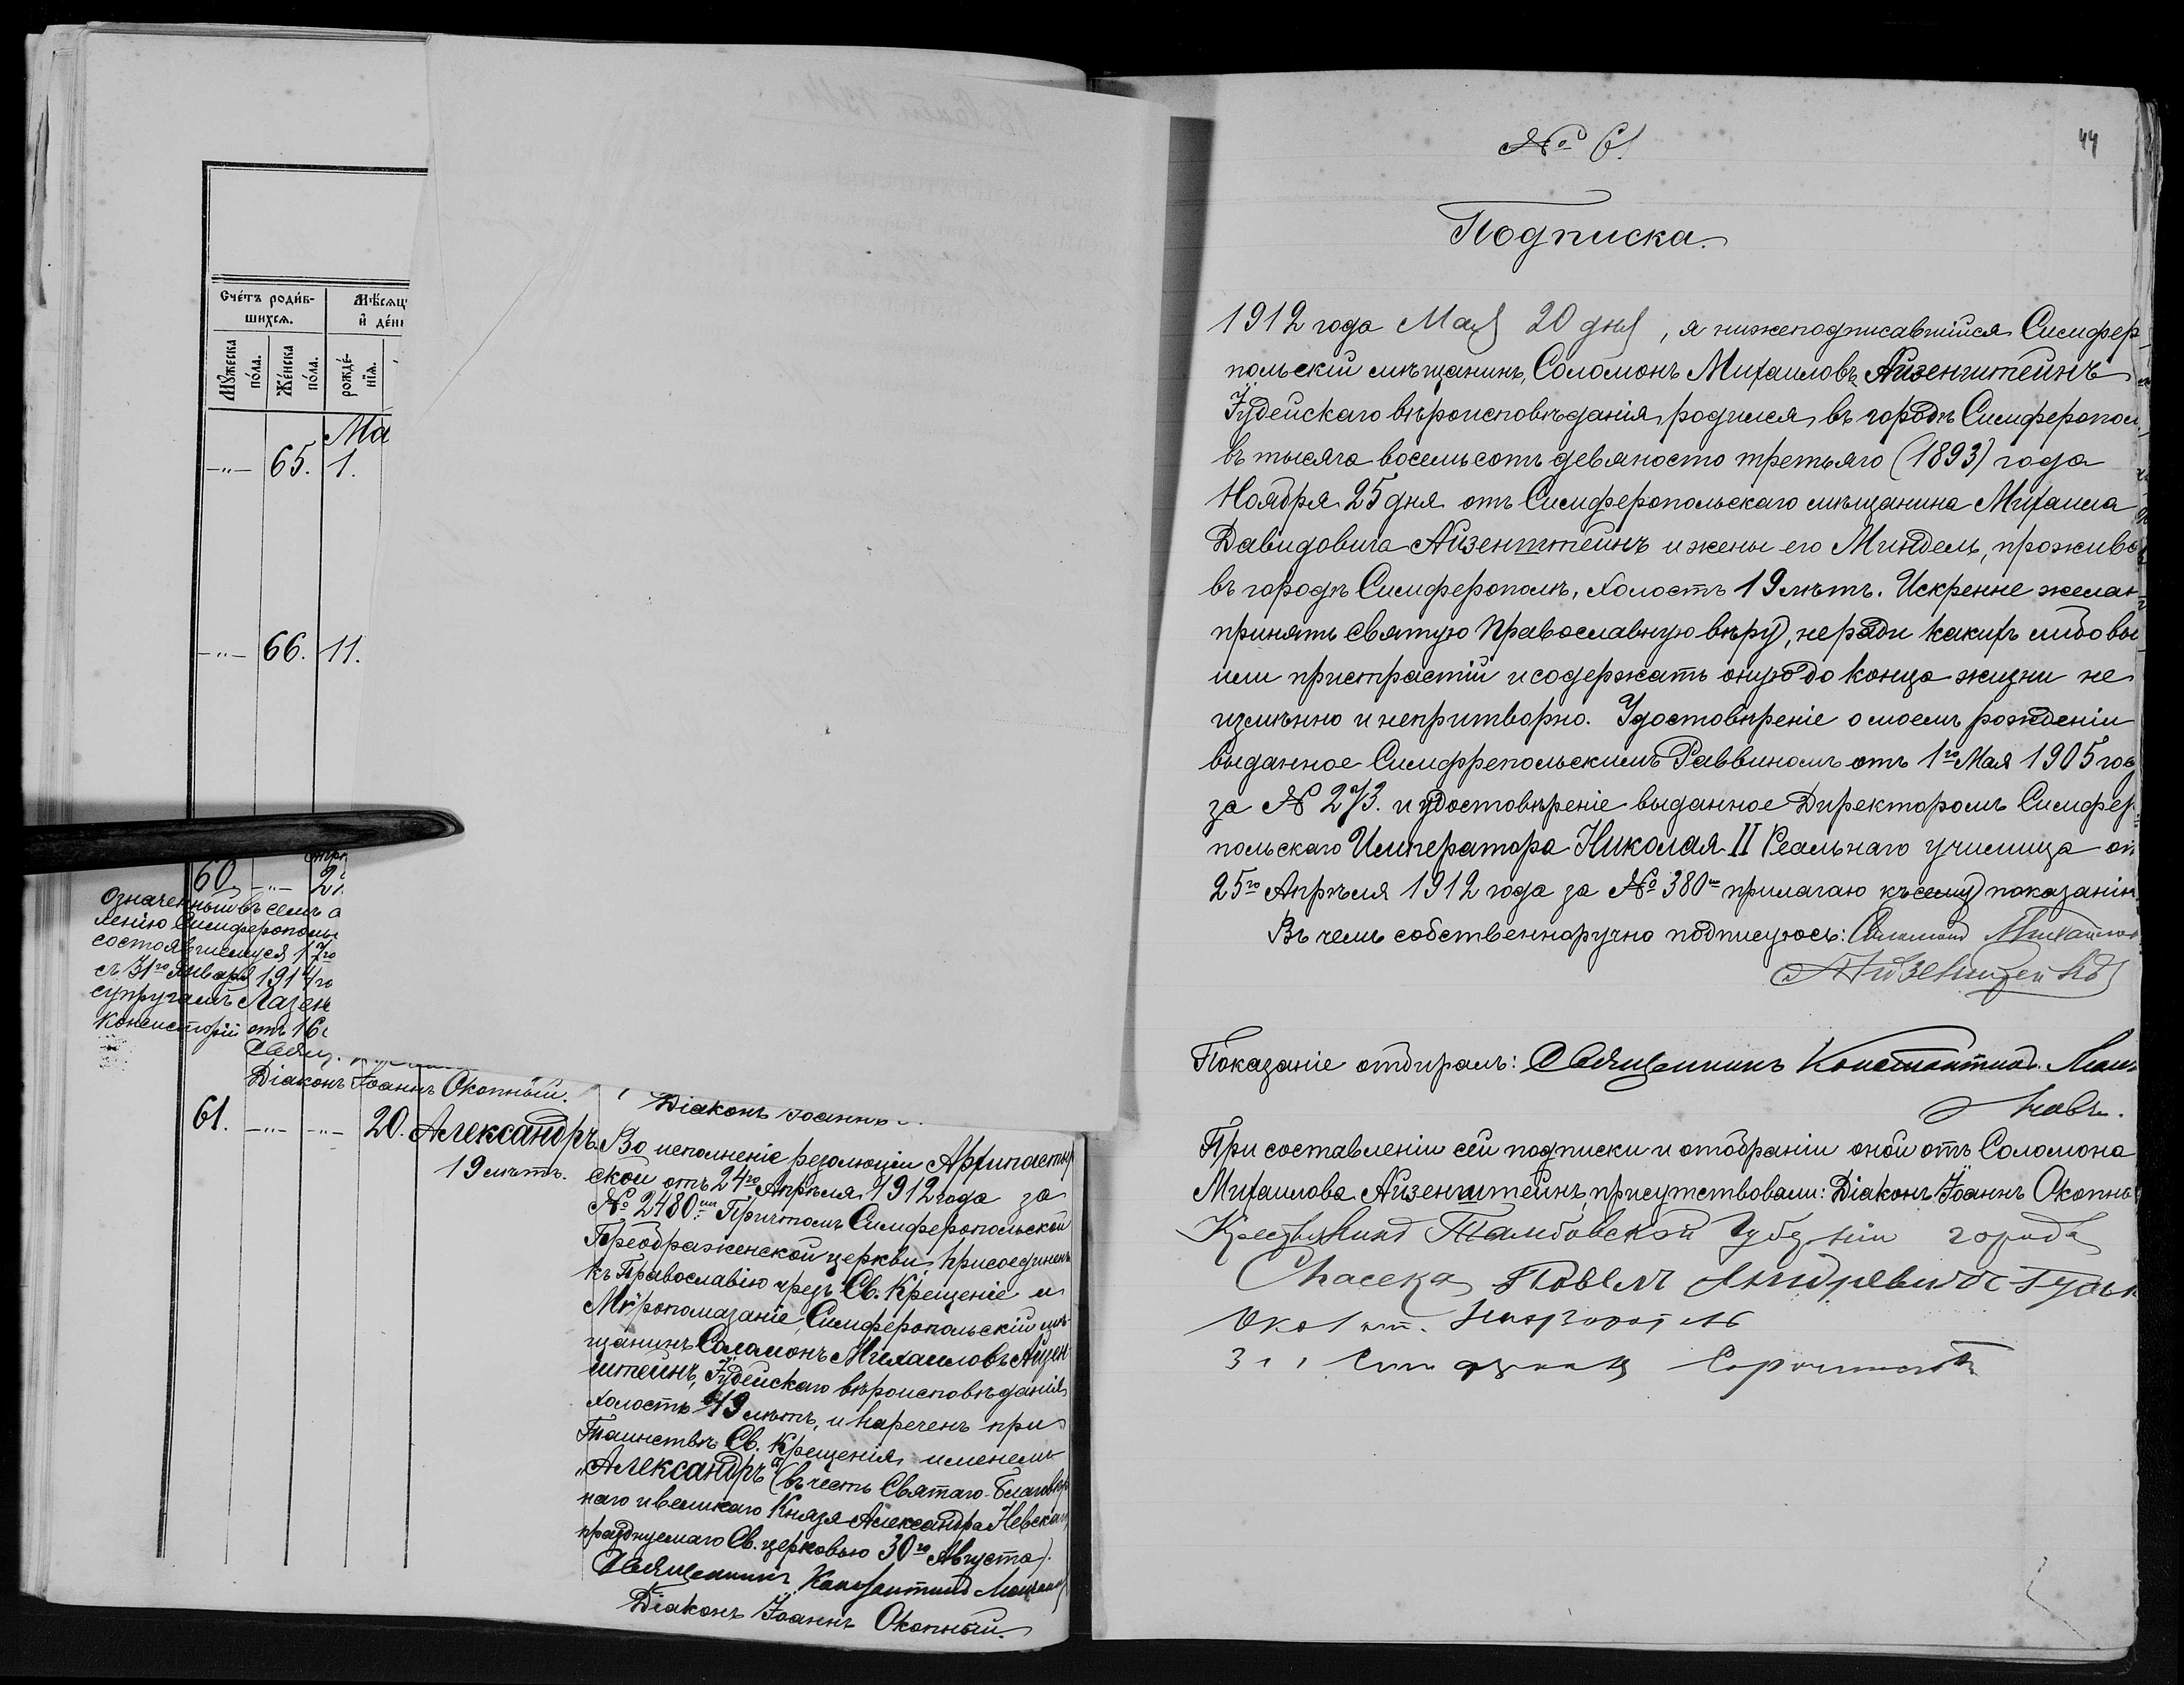 Счетъ родив-
шихся.
Мѣсяц
и ден
Мужеска
пола.
Женска
пола.
рожде-
нія.
Ма
-"- 65. 1.
-"- 66. 11.
60. -"- 21.
Означенный въ семъ а
лению Симферополь
состоявшемуся 17го
съ 31го Января 1914го
супругамъ Лазен
Консисторіи отъ 16
Діаконъ Іоаннъ Окопный.
Діаконъ Іоаннъ
61. -"- -"- 20. Александръ.
19 лѣтъ.
Во исполненіе резолюціи Архипастыр
ской отъ 24го Апрѣля 1912 года за
№ 2480мъ Причтомъ Симферопольской
Преображенской церкви, присоединенъ
къ Православію чрезъ Св. Крещеніе и
Мѵропомазаніе, Симферопольскій мѣ-
щанинъ Соломонъ Михаиловъ Айзен-
штейнъ, Іудейскаго вѣроисповѣданія
холостъ 19 лѣтъ, и нареченъ при
Таинствѣ Св. Крещенія именемъ
"Александръ" (въ честь Святаго Благовѣр
наго и великаго Князя Александра Невскаго
празднуемаго Св. церковью 30го Августа).
Священникъ Константинъ
Діаконъ Іоаннъ Окопный.
44
№ 61
Подписка.
1912 года Мая 20 дня, я нижеподписавшійся Симфер
польскій мѣщанинъ, Соломонъ Михаиловъ Айзенштейнъ
Іудейскаго вѣроисповѣданія, родился въ городѣ Симферопол
въ тысяча восемьсотъ девяносто третьяго (1893) года
Ноября 25 дня отъ Симферопольскаго мѣщанина Михаила
Давидовича Айзенштейнъ и жены его Миндель, прожива
въ городѣ Симферополѣ, холостъ 19 лѣтъ. Искренне желаю
принять святую Православную вѣру, не ради какихъ либо вы
или пристрастій и содержать оную до конца жизни не
измѣнно и непритворно. Удостовѣреніе о моемъ рожденіи
выданное Симфрепольскимъ Раввиномъ отъ 1го Мая 1905 год
за № 273. и удостовѣреніе выданное Директоромъ Симфер
польскаго Императора Николая II Реальнаго училища от
25го Апрѣля 1912 года за № 380мъ прилагаю къ сему показанію
Въ чемъ собственноручно подписуюсь: Соломонъ Михайлов
Айзенштейнъ
Показаніе отбиралъ: Священникъ Константинъ
При составленіи сей подписки и отобраніи оной отъ Соломона
Михаилова Айзенштейнъ, присутствовали: Діаконъ Іоаннъ Окопны
Крестьянинъ Тамбовской Губерніи города
Спаска Павелъ Андреевичъ
Окол. Надзиратель